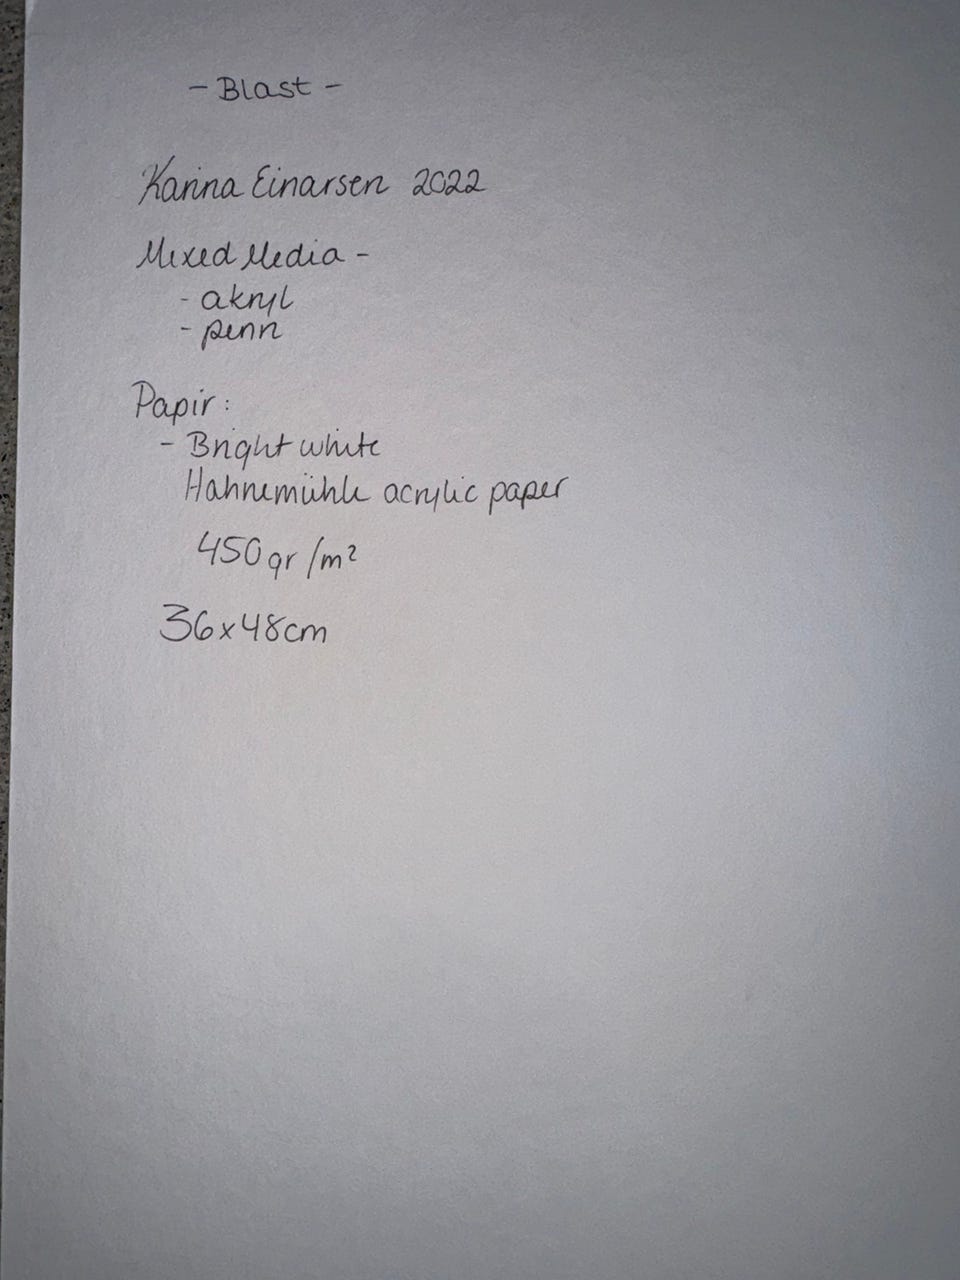 - Blast -
Karina Einarsen 2022
Mixed Media -
- akryl
- penn
Papir:
- Bright white
Hahnemühle acrylic paper
450gr/m²
36x48cm